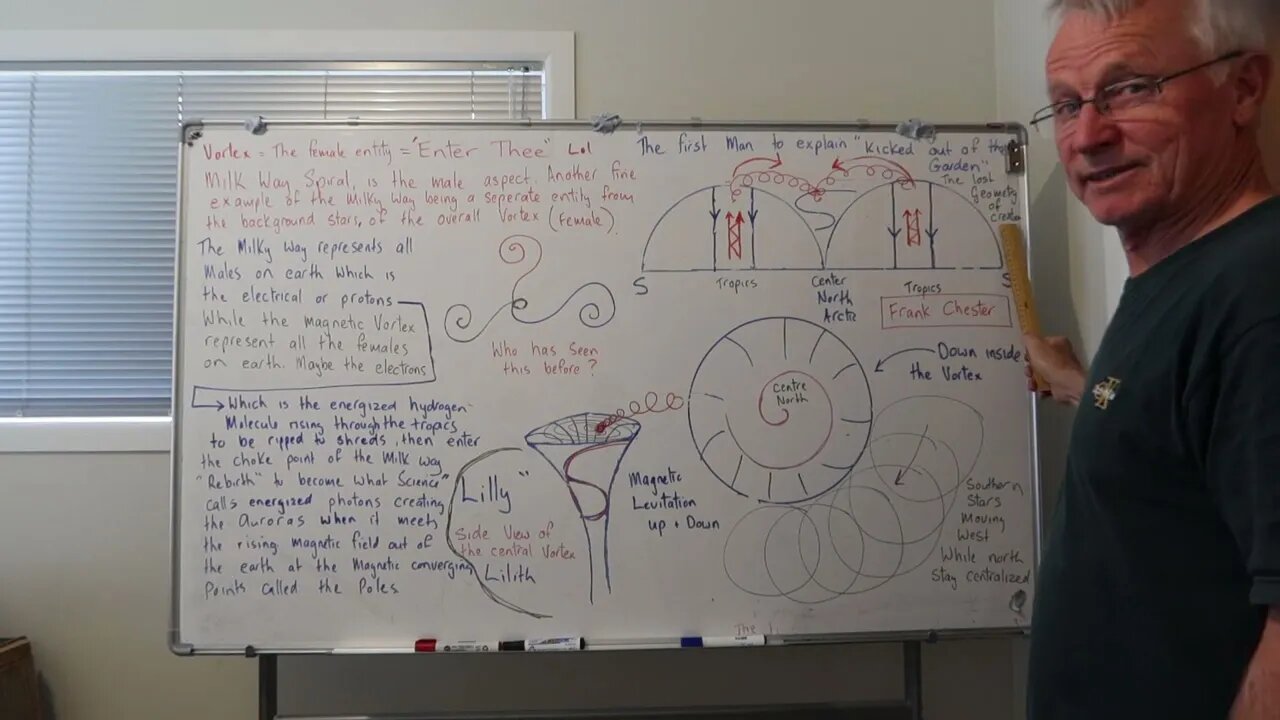 Vortex = The female entity = "Enter Thee" Lol
Milk Way Spiral, is the male aspect. Another fine
example of the Milky Way being a seperate entity from
the background stars, of the overall Vortex (Female).
The Milky Way represents all
Males on earth which is
the electrical or protons
While the magnetic Vortex
represent all the females
on earth. Maybe the electrons
Which is the energized hydrogen
Molecule rising through the tropics
to be ripped to shreds, then enter
the choke point of the Milk Way
"Rebirth" to become what Science
calls energized photons creating
the Auroras when it meets
the rising Magnetic field out of
the earth at the Magnetic converging
Points called the Poles.
Who has seen
this before?
"Lilly"
Side View of
the central Vortex
Lilith
Magnetic
Levitation
up + Down
The first Man to explain "Kicked out of the
Garden"
The lost
Geometry
of
S
Tropics
Center
North
Arctic
Tropics
S
Frank Chester
Down inside
the Vortex
Centre
North
Southern
Stars
Moving
West
While north
Stay centralized
The